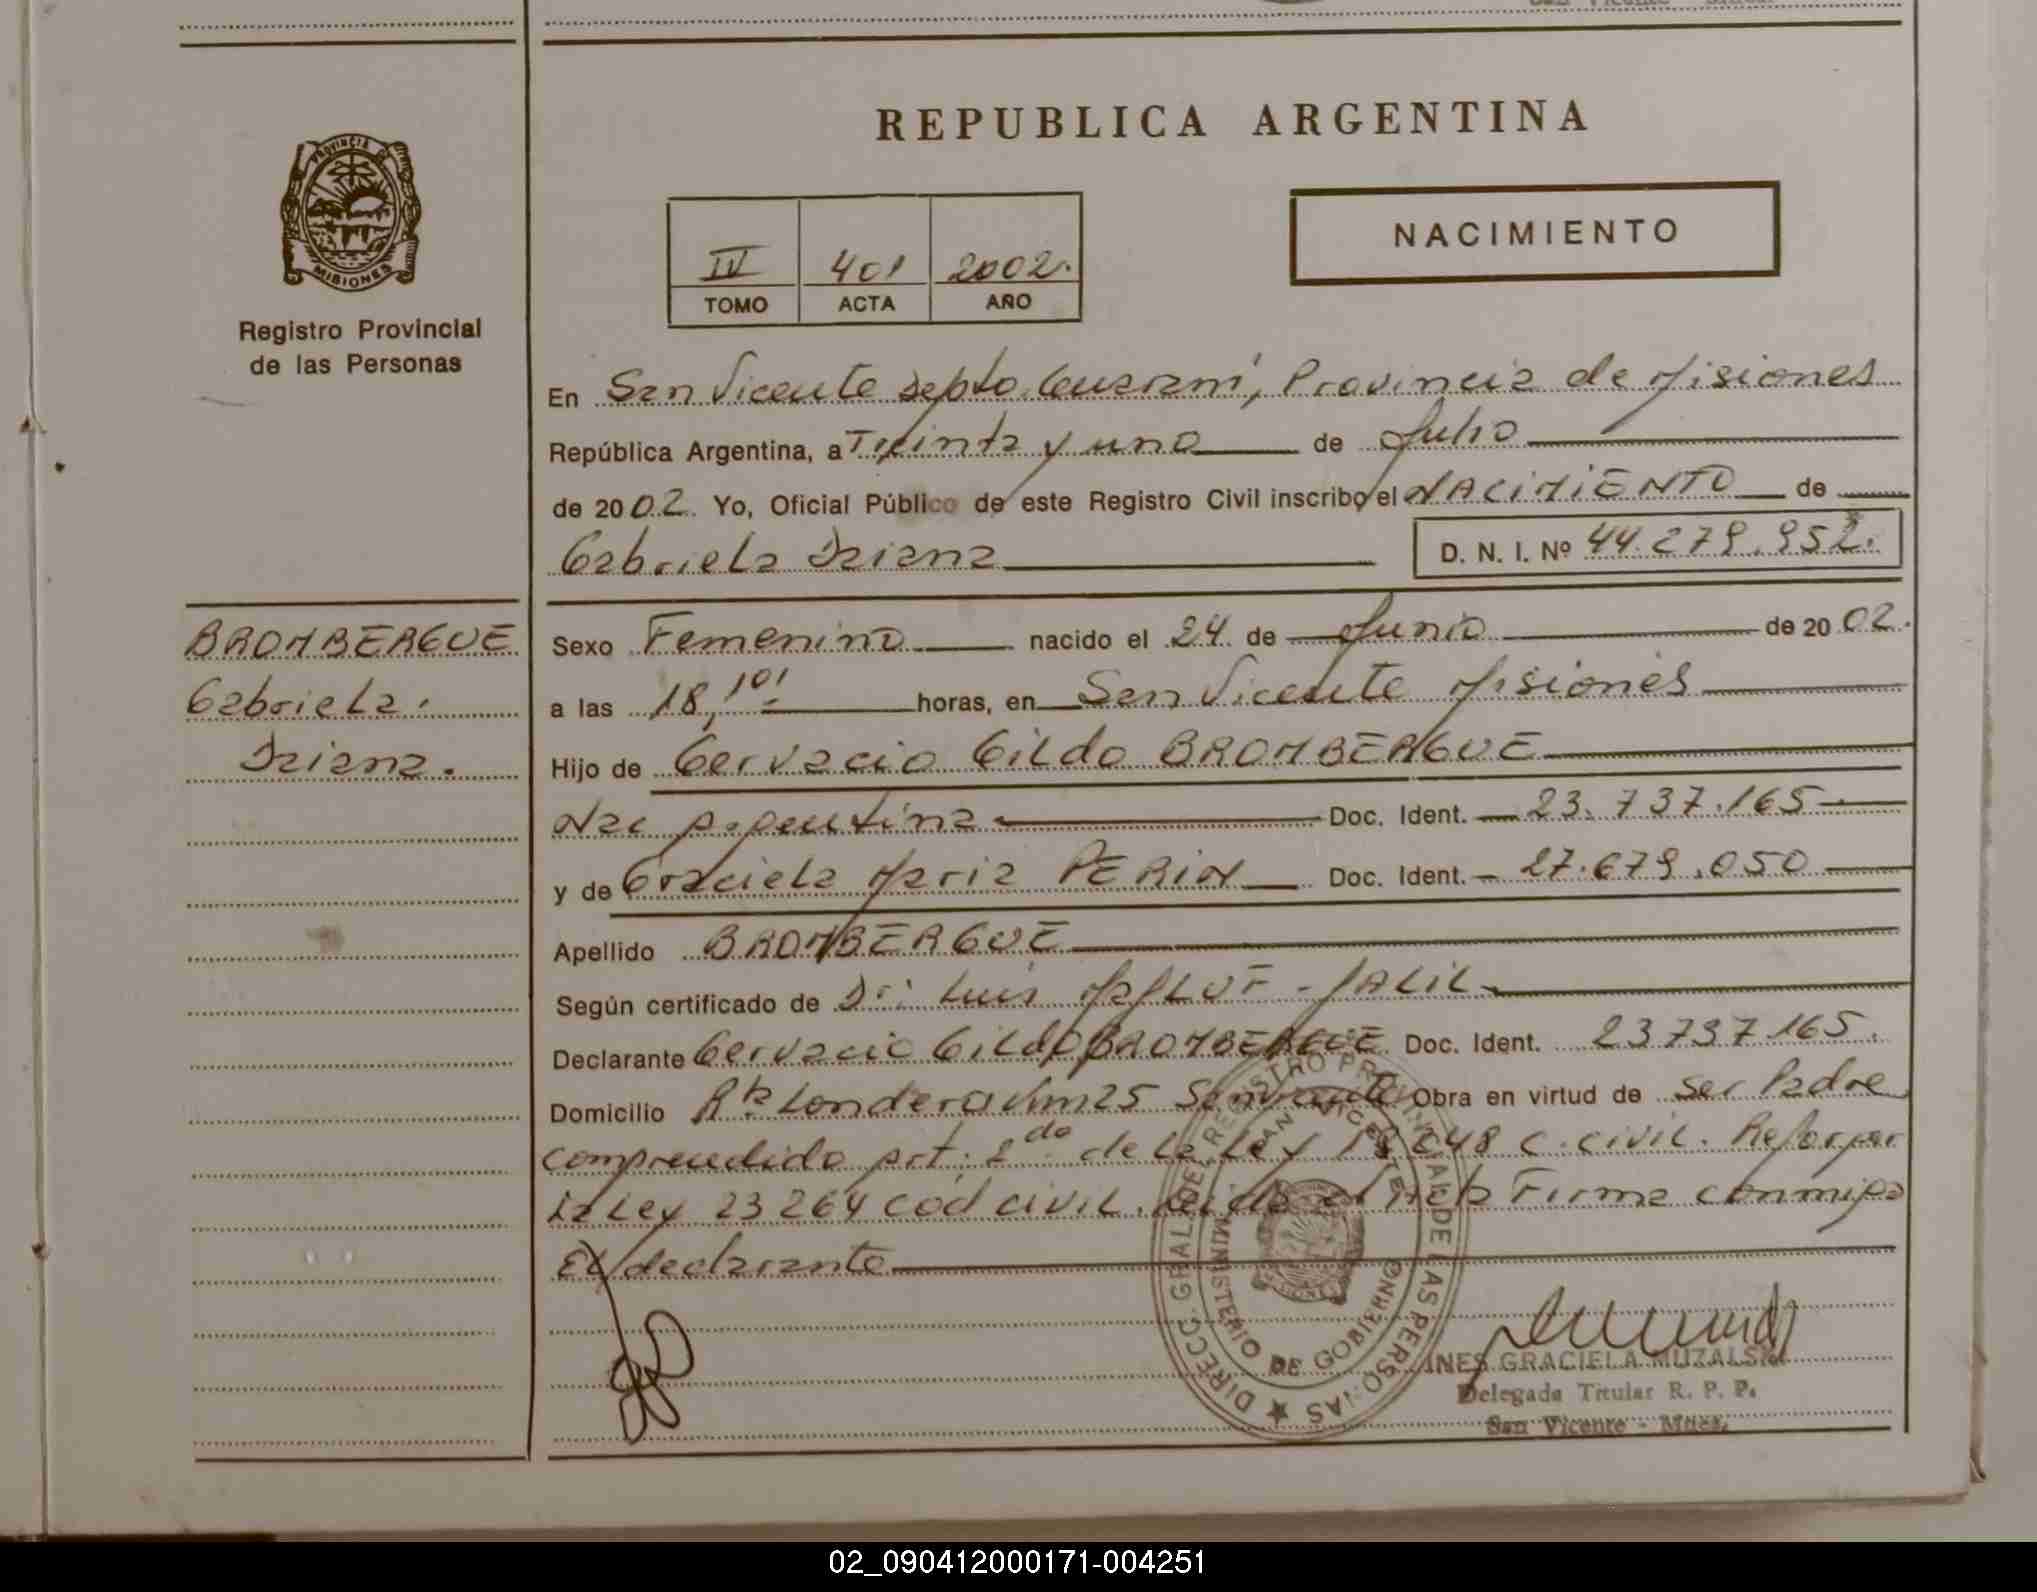 REPUBLICA ARGENTINA
PROVINCIA DE
MISIONES
Registro Provincial
de las Personas
IV 401 2002.
TOMO ACTA AÑO
NACIMIENTO
En San Vicente Depto. Guarani, Provincia de Misiones
República Argentina, a Treinta y uno de Julio
de 2002. Yo, Oficial Público de este Registro Civil inscribo el NACIMIENTO de
Gabriela Daiana D. N. I. Nº 44.279.952.
BROMBERGUE
Gabriela.
Daiana.
Sexo Femenino nacido el 24 de Junio de 2002.
a las 18,10' horas, en San Vicente Misiones
Hijo de Gervacio Gildo BROMBERGUE
Nac Argentina Doc. Ident. 23.737.165
y de Graciela Maria PERIN Doc. Ident. 27.679.050
Apellido BROMBERGUE
Según certificado de Dr: Luis MALUF - JALIL
Declarante Gervacio Gildo BROMBERGUE Doc. Ident. 23737165.
Domicilio Londero km 25 San Vicente Obra en virtud de ser Padre
comprendido Art. 2do de la Ley 18248 C. civil. Refor por
la Ley 23264 cod civil. Leida el Acta Firma conmigo
El declarante
DIRECC. GRAL. DEL REGISTRO PROVINCIAL DE LAS PERSONAS
SAN VICENTE
MINISTERIO DE GOBIERNO
INES GRACIELA MUZALSKI
Delegada Titular R. P. P.
San Vicente - Mnes.
02_090412000171-004251